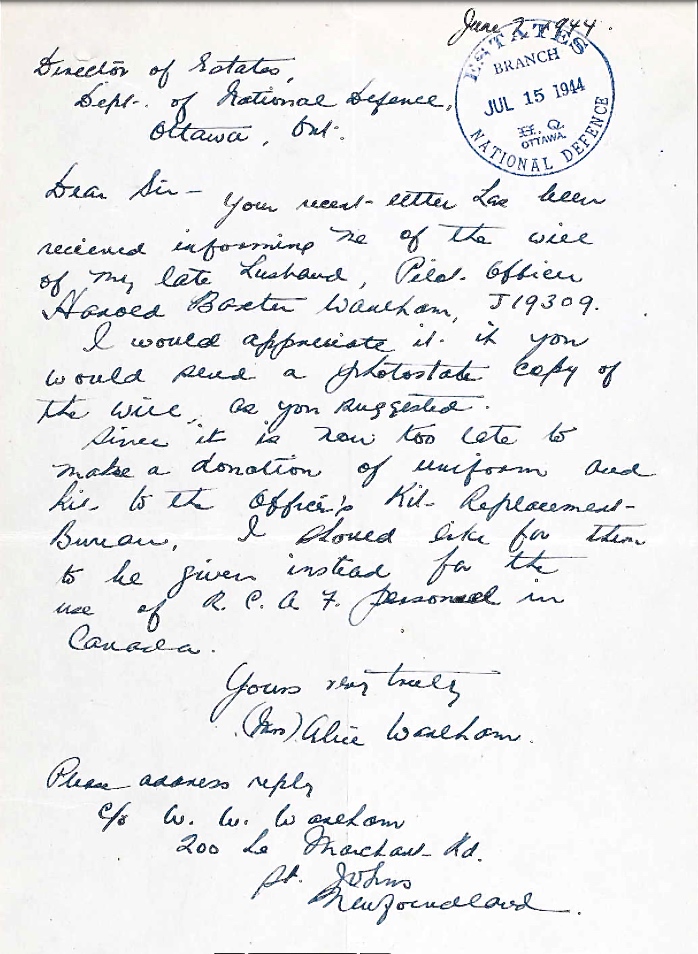 June 1944.
ESTATES
BRANCH
JUL 15 1944
H. Q.
OTTAWA.
NATIONAL DEFENCE
Director of Estates,
Dept. of National Defence,
Ottawa, Ont.
Dear Sir - Your recent letter has been
recieved informing me of the will
of my late husband, Pilot Officer
Harold Baxter Wareham, J19309.
I would appreciate it if you
would send a photostate copy of
the will, as you suggested.
Since it is now too late to
make a donation of uniform and
kit to the Officer's Kit Replacement
Bureau, I should like for them
to be given instead for the
use of R. C. A. F. personnel in
Canada.
Yours very truly
(Mrs) Alice Wareham.
Please address reply
c/o W. W. Wareham
200 Le Marchant Rd.
St. Johns
Newfoundland.